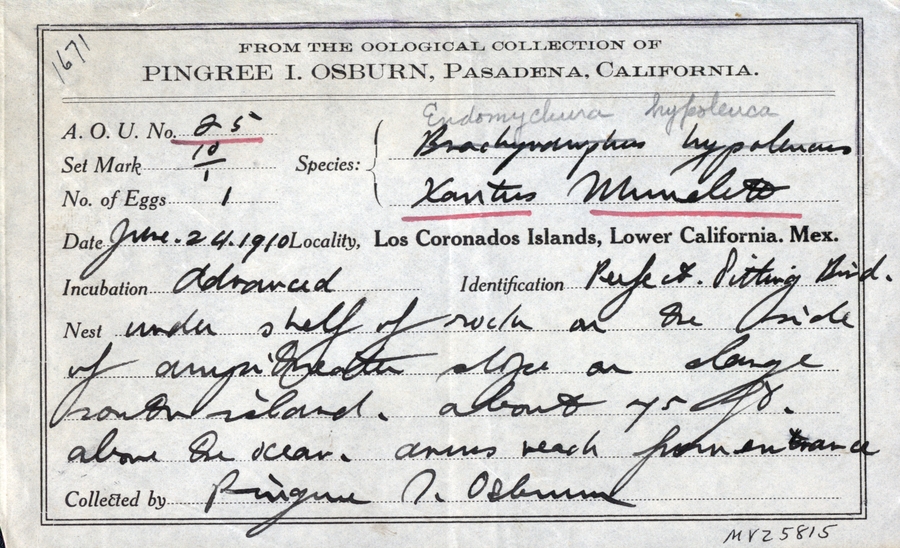 1671
FROM THE OOLOGICAL COLLECTION OF
PINGREE I. OSBURN, PASADENA, CALIFORNIA.
Endomychura hypoleuca
A. O. U. No. 25
Brachyramphus hypoleucus
Set Mark 10/1 Species:
Xantus Murrelett
No. of Eggs 1
Date June. 24. 1910 Locality, Los Coronados Islands, Lower California. Mex.
Incubation Advanced Identification Perfect. Sitting Bird.
Nest under shelf of rock on the side
of ampitheatre slope on large
south island. about 75 ft.
above the ocean. arms reach from entrance
Collected by Pingree I. Osburn
MVZ5815